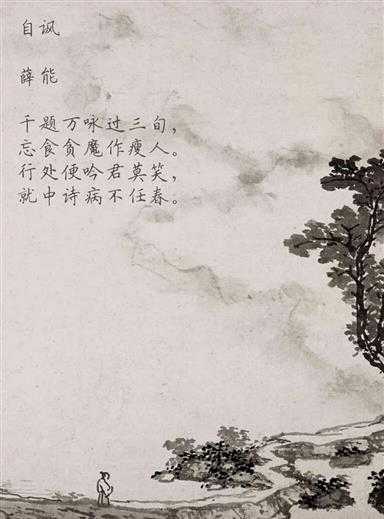 自讽
薛能
千题万咏过三旬，
忘食贪魔作瘦人。
行处便吟君莫笑，
就中诗病不任春。